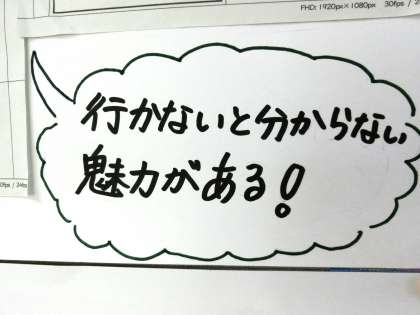 FHD: 1920px×1080px 30fps / 24
行かないと分からない
魅力がある!
30fps / 24fps